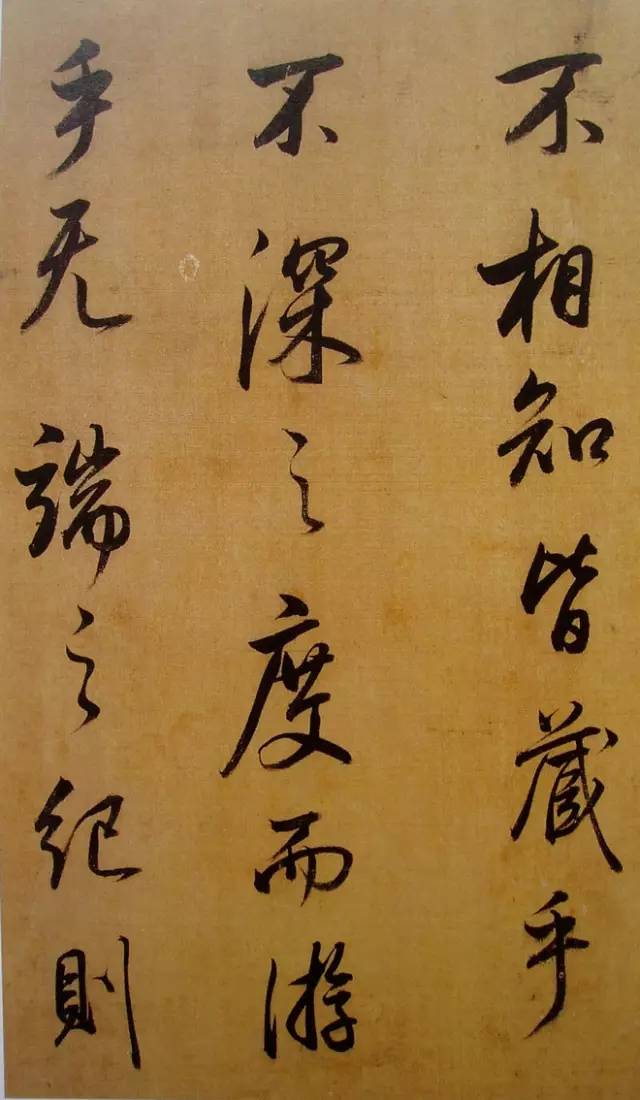 不相知皆藏乎
不深之度而游
乎无端之纪则